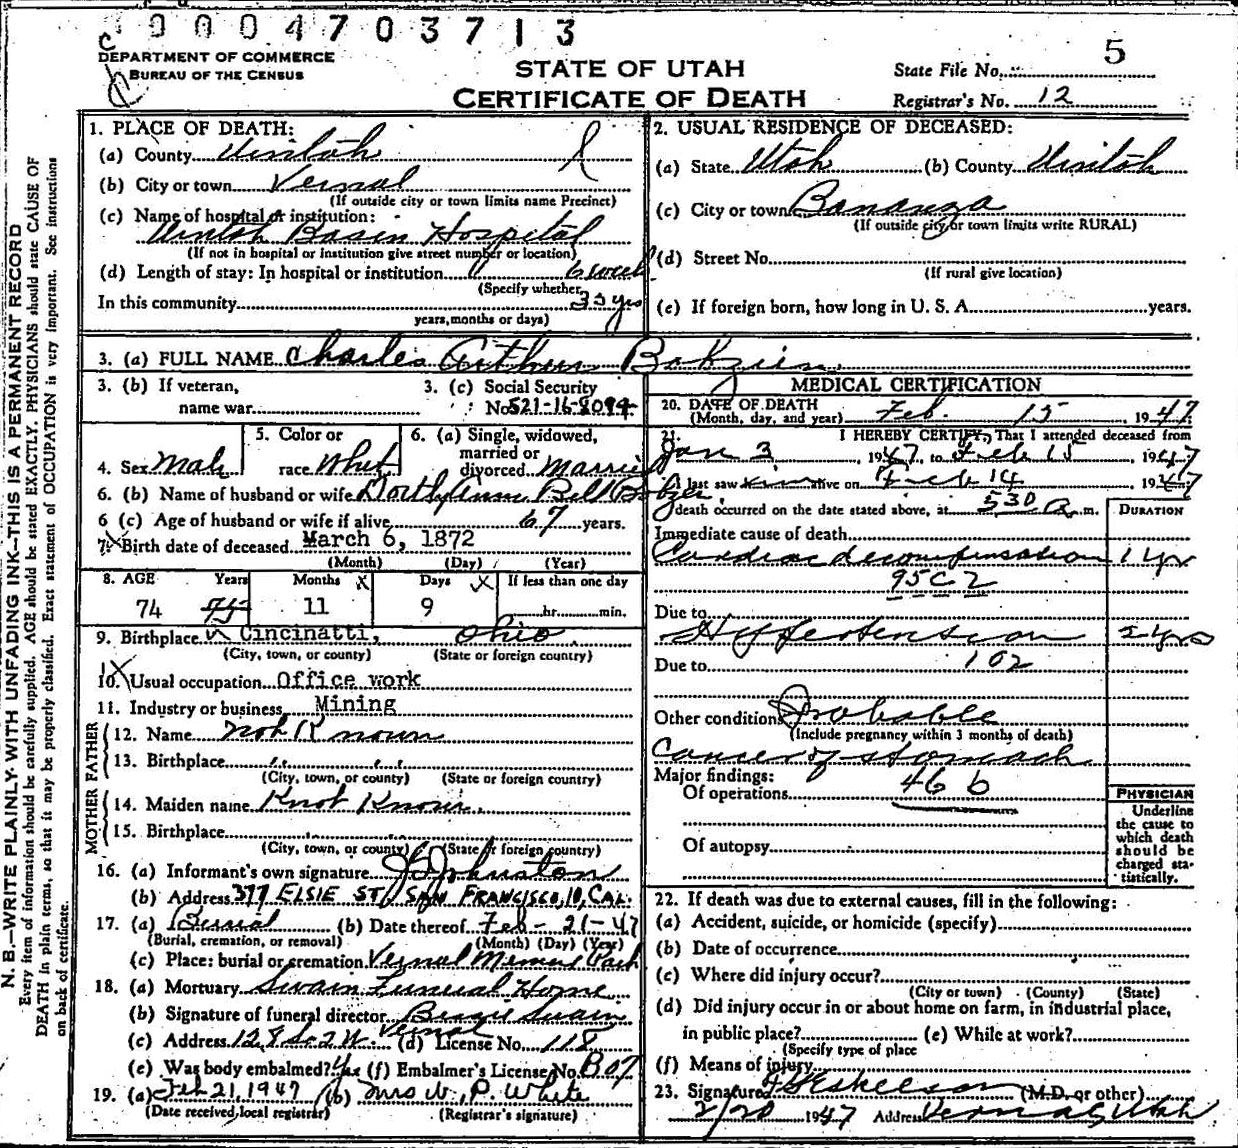 0004703713
C
DEPARTMENT OF COMMERCE
BUREAU OF THE CENSUS
STATE OF UTAH
CERTIFICATE OF DEATH
5
State File No.
Registrar's No. 12
N. B.—WRITE PLAINLY WITH UNFADING INK—THIS IS A PERMANENT RECORD
Every item of information should be carefully supplied. AGE should be stated EXACTLY. PHYSICIANS should state CAUSE OF
DEATH in plain terms, so that it may be properly classified. Exact statement of OCCUPATION is very important. See instructions
on back of certificate.
1. PLACE OF DEATH:
(a) County Uintah
(b) City or town Vernal
(If outside city or town limits name Precinct)
(c) Name of hospital or institution:
Uintah Basin Hospital
(If not in hospital or institution give street number or location)
(d) Length of stay: In hospital or institution 6 week
(Specify whether
In this community 35 yrs
years, months or days)
2. USUAL RESIDENCE OF DECEASED:
(a) State Utah (b) County Uintah
(c) City or town Bonanza
(If outside city or town limits write RURAL)
(d) Street No.
(If rural give location)
(e) If foreign born, how long in U. S. A. years.
3. (a) FULL NAME Charles Arthur
3. (b) If veteran,
name war
3. (c) Social Security
No. 521-16-8094
4. Sex Male
5. Color or
race White
6. (a) Single, widowed,
married or
divorced Married
6. (b) Name of husband or wife Bell
6 (c) Age of husband or wife if alive 67 years.
7. Birth date of deceased March 6, 1872
(Month) (Day) (Year)
8. AGE Years Months Days If less than one day
74 75 11 9 hr. min.
9. Birthplace Cincinatti, Ohio
(City, town, or county) (State or foreign country)
10. Usual occupation Office work
11. Industry or business Mining
FATHER
12. Name not Known
13. Birthplace " "
(City, town, or county) (State or foreign country)
MOTHER
14. Maiden name Knot Known
15. Birthplace
(City, town, or county) (State or foreign country)
16. (a) Informant's own signature Johnston
(b) Address 377 ELSIE ST, SAN FRANCISCO, 10, CAL.
17. (a) Burial (b) Date thereof Feb - 21 - 47
(Burial, cremation, or removal) (Month) (Day) (Year)
(c) Place: burial or cremation Vernal Memory Park
18. (a) Mortuary Swain Funeral Home
(b) Signature of funeral director Swain
(c) Address 128 So. 2 W. Vernal (d) License No. 118
(e) Was body embalmed? Yes (f) Embalmer's License No. B07
19. (a) Feb 21, 1947 (b) Mrs W. P. White
(Date received, local registrar) (Registrar's signature)
MEDICAL CERTIFICATION
20. DATE OF DEATH
(Month, day, and year) Feb. 15 1947
21. I HEREBY CERTIFY, That I attended deceased from
Jan 3 1947, to Feb 15, 1947
I last saw him alive on Feb 14 1947
death occurred on the date stated above, at 530 a. m.
DURATION
Immediate cause of death
Cardiac decompensation 1 yr
95C2
Due to
Hypertension 2 yrs
Due to 102
Other conditions Probable
(Include pregnancy within 3 months of death)
Cancer of stomach
Major findings:
Of operations 46 b
Of autopsy
PHYSICIAN
Underline
the cause to
which death
should be
charged sta-
tistically.
22. If death was due to external causes, fill in the following:
(a) Accident, suicide, or homicide (specify)
(b) Date of occurrence
(c) Where did injury occur?
(City or town) (County) (State)
(d) Did injury occur in or about home on farm, in industrial place,
in public place? (e) While at work?
(Specify type of place
(f) Means of injury
23. Signature Eskelson (M.D. or other)
2/20 1947 Address Vernal, Utah